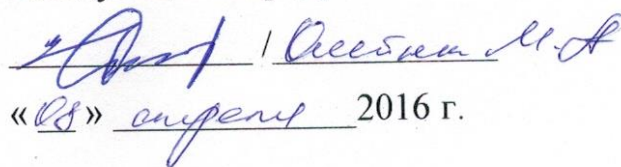 / Олейник М.А
«08» апреля 2016 г.